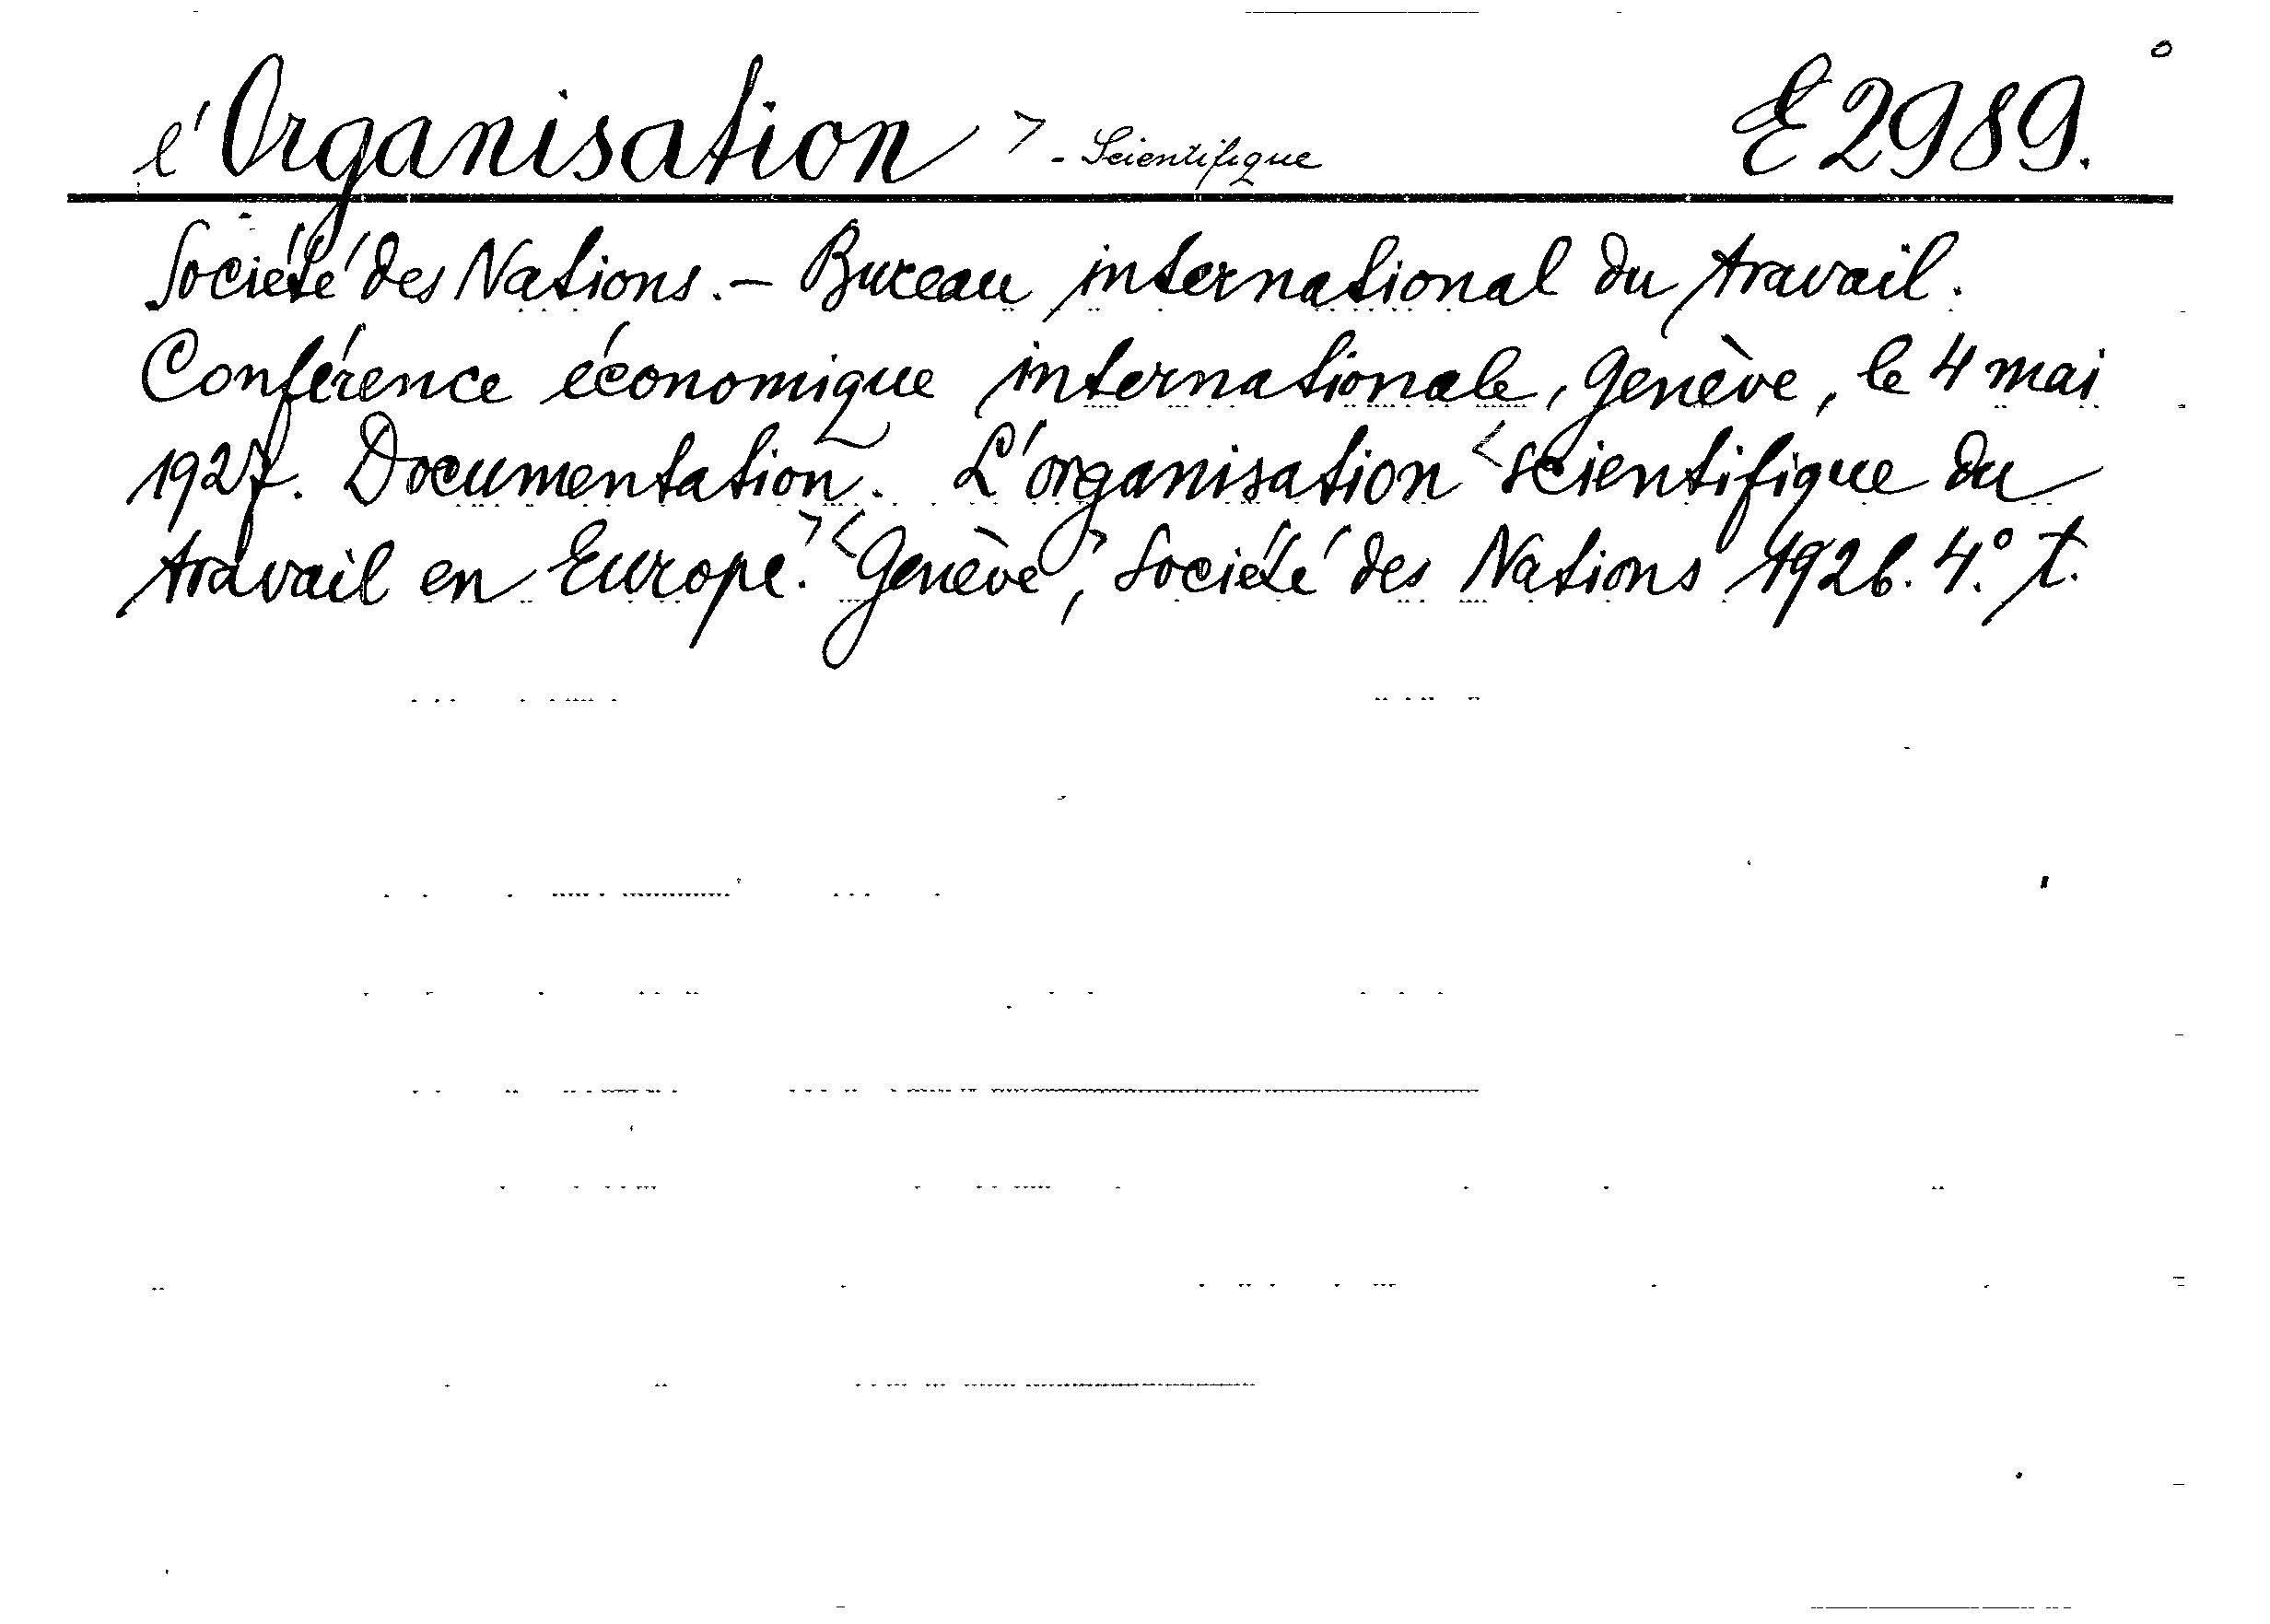 l'Organisation > - Scientifique E 2989.
Société des Nations. - Bureau international du travail.
Conférence économique internationale, Genève, le 4 mai
1927. Documentation. L'organisation <scientifique du
travail en Europe.> <Genève>, Société des Nations 1926. 4.° t.